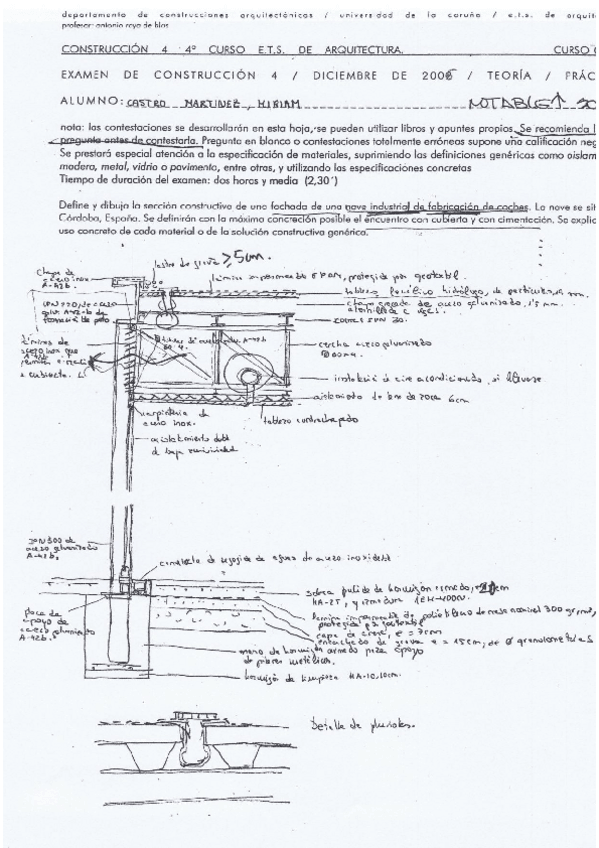 departamento de construcciones arquitectónicas / universidad de la coruña / e.t.s. de arquit
profesor: antonio raya de blas
CONSTRUCCIÓN 4 4º CURSO E.T.S. DE ARQUITECTURA. CURSO
EXAMEN DE CONSTRUCCIÓN 4 / DICIEMBRE DE 2006 / TEORÍA / PRÁC
ALUMNO: CASTRO MARTINEZ, MIRIAM NOTABLE↑
nota: las contestaciones se desarrollarán en esta hoja, se pueden utilizar libros y apuntes propios. Se recomienda l
pregunta antes de contestarla. Pregunta en blanco o contestaciones totalmente erróneas supone una calificación neg
Se prestará especial atención a la especificación de materiales, suprimiendo las definiciones genéricas como aislam
madera, metal, vidrio o pavimento, entre otras, y utilizando las especificaciones concretas
Tiempo de duración del examen: dos horas y media (2,30´)
Define y dibuja la sección constructiva de una fachada de una nave industrial de fabricación de coches. La nave se sit
Córdoba, España. Se definirán con la máxima concreción posible el encuentro con cubierta y con cimentación. Se explic
uso concreto de cada material o de la solución constructiva genérica.
lastre de grava >5cm.
chapa de acero inox
A-42b.
lámina impermeable EPDM, protegida por geotextil.
tablero fenólico hidrófugo, de partículas,
chapa grecada de acero galvanizado, 1'5 mm.
cercha acero galvanizado
instalación de aire acondicionado, si hubiese
aislamiento de lana de roca 6cm
tablero contrachapado
carpintería de acero inox.
acristalamiento doble
de baja emisividad
a cubierta.
IPN 300 de
acero galvanizado
A-42b.
canaleta de recogida de aguas de acero inoxidable
placa de
apoyo de
acero galvanizado
A-42b.
solera pulida de hormigón armado,
HA-25, y armadura
lámina impermeable de polietileno de masa nominal 300 gr/m²,
protegida por geotextil
capa de arena, e = 3cm
encachado de grava e = 15cm, de Ø granulometrías
muro de hormigón armado para apoyo
de pilares metálicos.
hormigón de limpieza HA-10, 10cm.
Detalle de pluviales.